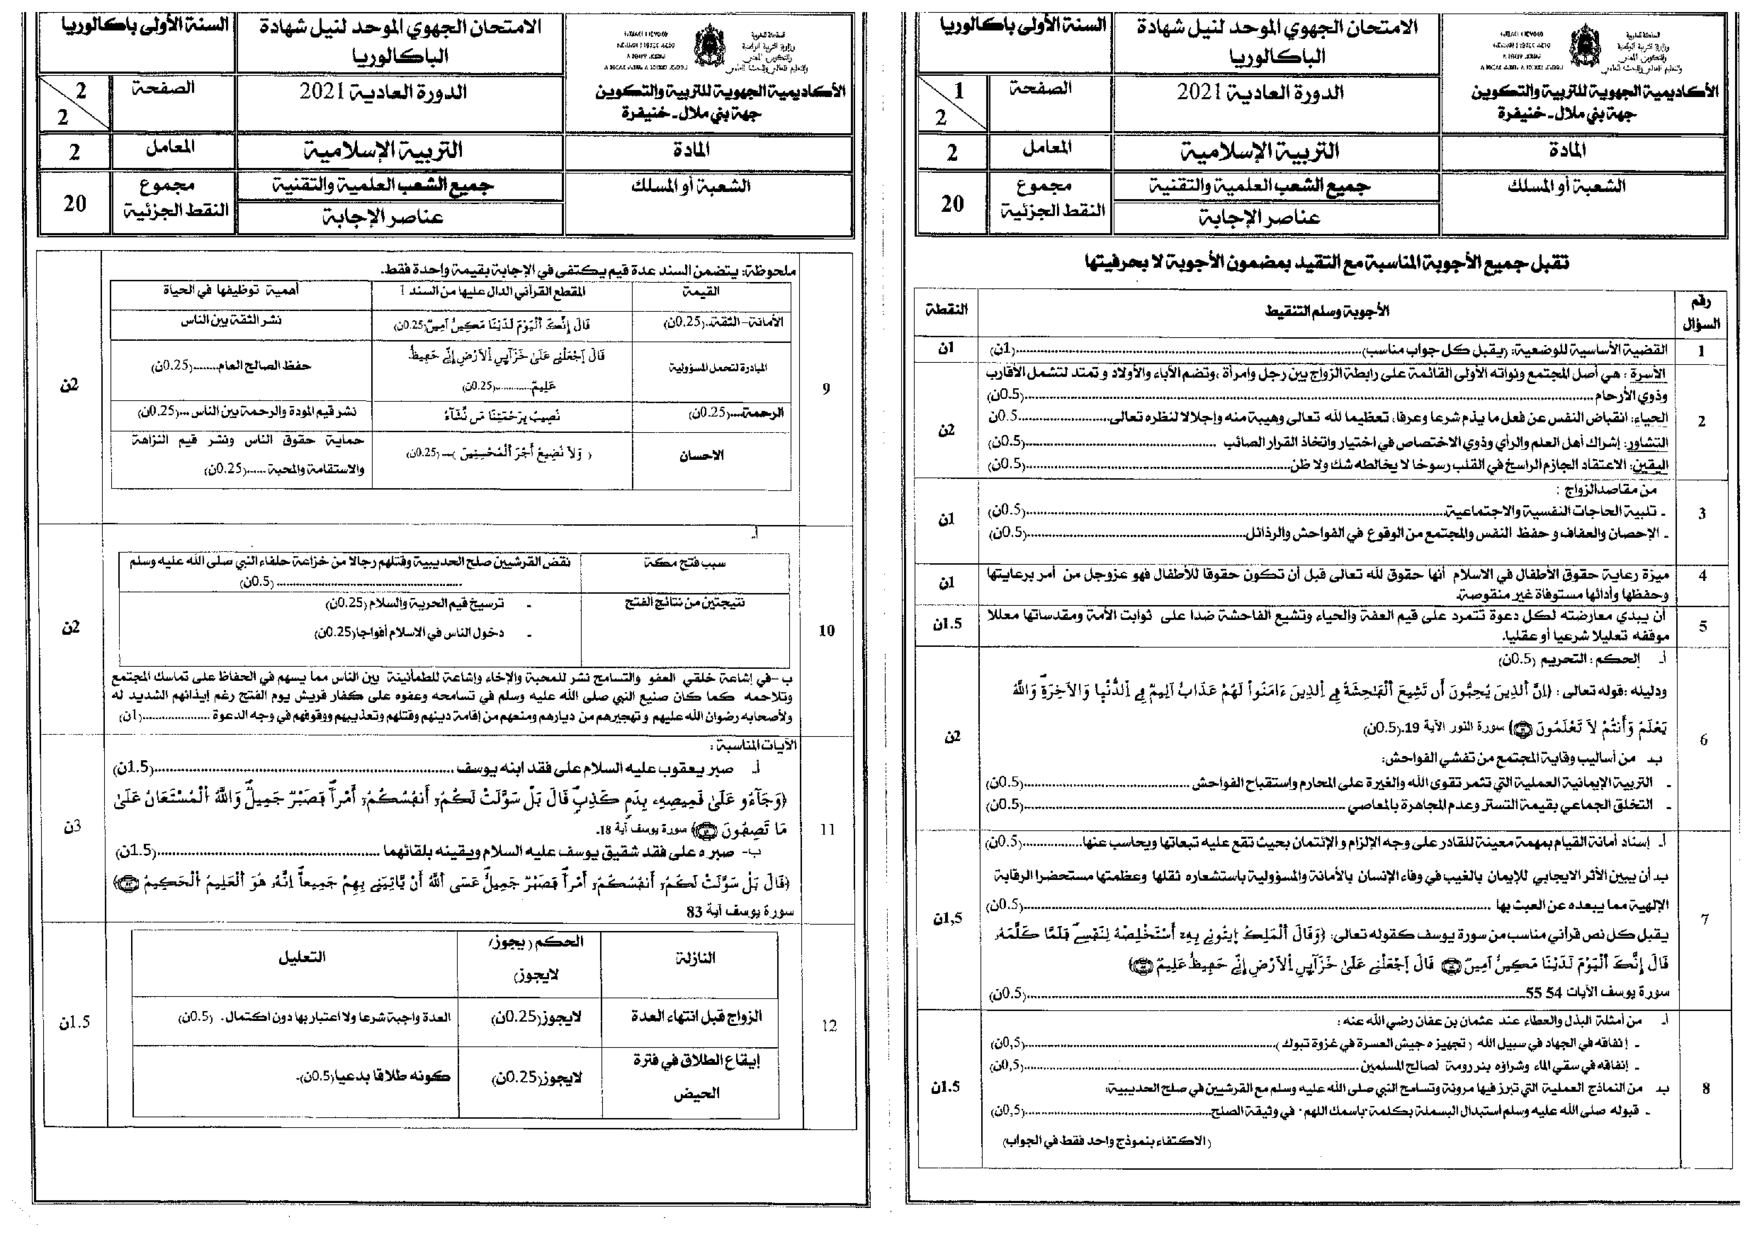 السنة الأولى باكالوريا
الامتحان الجهوي الموحد لنيل شهادة الباكالوريا
المملكة المغربية
وزارة التربية الوطنية
والتكوين المهني
والتعليم العالي والبحث العلمي
الصفحة
1
2
الدورة العادية 2021
الأكاديمية الجهوية للتربية والتكوين
جهة بني ملال - خنيفرة
2
المعامل
التربية الإسلامية
المادة
20
مجموع النقط الجزئية
جميع الشعب العلمية والتقنية
عناصر الإجابة
الشعبة أو المسلك
تقبل جميع الأجوبة المناسبة مع التقيد بمضمون الأجوبة لا بحرفيتها
رقم السؤال
الأجوبة وسلم التنقيط
النقطة
1
القضية الأساسية للوضعية: (يقبل كل جواب مناسب)..........(1ن)
1ن
2
الأسرة : هي أصل المجتمع ونواته الأولى القائمة على رابطة الزواج بين رجل وامرأة ،وتضم الأباء والأولاد و تمتد لتشمل الأقارب
وذوي الأرحام..........(0.5ن)
الحياء: انقباض النفس عن فعل ما يذم شرعا وعرفا، تعظيما لله تعالى وهيبة منه وإجلالا لنظره تعالى..........0.5ن
التشاور: إشراك أهل العلم والرأي وذوي الاختصاص في اختيار واتخاذ القرار الصائب ..........(0.5ن)
اليقين: الاعتقاد الجازم الراسخ في القلب رسوخا لا يخالطه شك ولا ظن..........(0.5ن)
2ن
3
من مقاصد الزواج :
- تلبية الحاجات النفسية والاجتماعية..........(0.5ن)
- الإحصان والعفاف و حفظ النفس والمجتمع من الوقوع في الفواحش والرذائل..........(0.5ن)
1ن
4
ميزة رعاية حقوق الأطفال في الاسلام أنها حقوق لله تعالى قبل أن تكون حقوقا للأطفال فهو عزوجل من أمر برعايتها
وحفظها وأدائها مستوفاة غير منقوصة.
1ن
5
أن يبدي معارضته لكل دعوة تتمرد على قيم العفة والحياء وتشيع الفاحشة ضدا على ثوابت الأمة ومقدساتها معللا
موقفه تعليلا شرعيا أو عقليا.
1.5ن
6
أ. الحكم : التحريم (0.5ن)
ودليله :قوله تعالى : ﴿إِنَّ ٱلَّذِينَ يُحِبُّونَ أَن تَشِيعَ ٱلْفَٰحِشَةُ فِے ٱلَّذِينَ ءَامَنُواْ لَهُمْ عَذَابٌ أَلِيمٌ فِے ٱلدُّنْيَا وَالَاخِرَةِ وَٱللَّهُ
يَعْلَمُ وَأَنتُمْ لَا تَعْلَمُونَ﴾ سورة النور الآية 19.(0.5ن)
ب. من أساليب وقاية المجتمع من تفشي الفواحش:
- التربية الإيمانية العملية التي تثمر تقوى الله والغيرة على المحارم واستقباح الفواحش..........(0.5ن)
- التخلق الجماعي بقيمة التستر وعدم المجاهرة بالمعاصي..........(0.5ن)
2ن
7
أ. إسناد أمانة القيام بمهمة معينة للقادر على وجه الإلزام و الإئتمان بحيث تقع عليه تبعاتها ويحاسب عنها..........(0.5ن)
ب. أن يبين الأثر الايجابي للإيمان بالغيب في وفاء الإنسان بالأمانة والمسؤولية باستشعاره ثقلها وعظمتها مستحضرا الرقابة
الإلهية مما يبعده عن العبث بها ..........(0.5ن)
يقبل كل نص قرآني مناسب من سورة يوسف كقوله تعالى: ﴿وَقَالَ ٱلْمَلِكُ اِيتُونِے بِهِۦٓ أَسْتَخْلِصْهُ لِنَفْسِے فَلَمَّا كَلَّمَهُۥ
قَالَ إِنَّكَ ٱلْيَوْمَ لَدَيْنَا مَكِينٌ أَمِينٌ قَالَ اَجْعَلْنِے عَلَىٰ خَزَآئِنِ الَارْضِ إِنِّے حَفِيظٌ عَلِيمٌ﴾
سورة يوسف الآيات 54 55..........(0.5ن)
1,5ن
8
أ. من أمثلة البذل والعطاء عند عثمان بن عفان رضي الله عنه :
- إنفاقه في الجهاد في سبيل الله ( تجهيزه جيش العسرة في غزوة تبوك )..........(0,5ن)
- إنفاقه في سقي الماء وشراؤه بئر رومة لصالح المسلمين..........(0,5ن)
ب. من النماذج العملية التي تبرز فيها مرونة وتسامح النبي صلى الله عليه وسلم مع القرشيين في صلح الحديبية:
- قبوله صلى الله عليه وسلم استبدال البسملة بكلمة "باسمك اللهم" في وثيقة الصلح..........(0,5ن)
(الاكتفاء بنموذج واحد فقط في الجواب)
1.5ن
السنة الأولى باكالوريا
الامتحان الجهوي الموحد لنيل شهادة الباكالوريا
المملكة المغربية
وزارة التربية الوطنية
والتكوين المهني
والتعليم العالي والبحث العلمي
الصفحة
2
2
الدورة العادية 2021
الأكاديمية الجهوية للتربية والتكوين
جهة بني ملال - خنيفرة
2
المعامل
التربية الإسلامية
المادة
20
مجموع النقط الجزئية
جميع الشعب العلمية والتقنية
عناصر الإجابة
الشعبة أو المسلك
9
ملحوظة: يتضمن السند عدة قيم يكتفى في الإجابة بقيمة واحدة فقط.
القيمة
المقطع القرآني الدال عليها من السند 1
أهمية توظيفها في الحياة
الأمانة-الثقة..(0.25ن)
قَالَ إِنَّكَ ٱلْيَوْمَ لَدَيْنَا مَكِينٌ أَمِينٌ(0.25ن)
نشر الثقة بين الناس
المبادرة لتحمل المسؤولية
قَالَ اَجْعَلْنِے عَلَىٰ خَزَآئِنِ الَارْضِ إِنِّے حَفِيظٌ
عَلِيمٌ..........(0.25ن)
حفظ الصالح العام........(0.25ن)
الرحمة....(0.25ن)
نُصِيبُ بِرَحْمَتِنَا مَن نَّشَآءُ
نشر قيم المودة والرحمة بين الناس ...(0.25ن)
الاحسان
( وَلَا نُضِيعُ أَجْرَ ٱلْمُحْسِنِينَ )...(0.25ن)
حماية حقوق الناس ونشر قيم النزاهة
والاستقامة والمحبة .....(0.25ن)
2ن
10
أ.
سبب فتح مكة
نقض القرشيين صلح الحديبية وقتلهم رجالا من خزاعة حلفاء النبي صلى الله عليه وسلم
..........(0.5ن)
نتيجتين من نتائج الفتح
- ترسيخ قيم الحرية والسلام (0.25ن)
- دخول الناس في الاسلام أفواجا(0.25ن)
ب-في إشاعة خلقي العفو والتسامح نشر للمحبة والإخاء وإشاعة للطمأنينة بين الناس مما يسهم في الحفاظ على تماسك المجتمع
وتلاحمه كما كان صنيع النبي صلى الله عليه وسلم في تسامحه وعفوه على كفار قريش يوم الفتح رغم إيذائهم الشديد له
ولأصحابه رضوان الله عليهم و تهجيرهم من ديارهم ومنعهم من إقامة دينهم وقتلهم وتعذيبهم ووقوفهم في وجه الدعوة ..........(1ن)
2ن
11
الآيات المناسبة :
أ. صبر يعقوب عليه السلام على فقد ابنه يوسف..........(1.5ن)
﴿وَجَآءُو عَلَىٰ قَمِيصِهِۦ بِدَمٍ كَذِبٍ قَالَ بَلْ سَوَّلَتْ لَكُمُۥٓ أَنفُسُكُمُۥٓ أَمْراً فَصَبْرٌ جَمِيلٌ وَٱللَّهُ ٱلْمُسْتَعَانُ عَلَىٰ
مَا تَصِفُونَ﴾ سورة يوسف آية 18.
ب- صبره على فقد شقيق يوسف عليه السلام ويقينه بلقائهما ..........(1.5ن)
﴿قَالَ بَلْ سَوَّلَتْ لَكُمُۥٓ أَنفُسُكُمُۥٓ أَمْراً فَصَبْرٌ جَمِيلٌ عَسَى ٱللَّهُ أَنْ يَّاتِيَنِے بِهِمْ جَمِيعاً اِنَّهُۥ هُوَ ٱلْعَلِيمُ ٱلْحَكِيمُ﴾
سورة يوسف آية 83
3ن
12
النازلة
الحكم (يجوز/
لايجوز)
التعليل
الزواج قبل انتهاء العدة
لايجوز(0.25ن)
العدة واجبة شرعا ولا اعتبار بها دون اكتمال. (0.5ن)
إيقاع الطلاق في فترة
الحيض
لايجوز(0.25ن)
كونه طلاقا بدعيا(0.5ن).
1.5ن